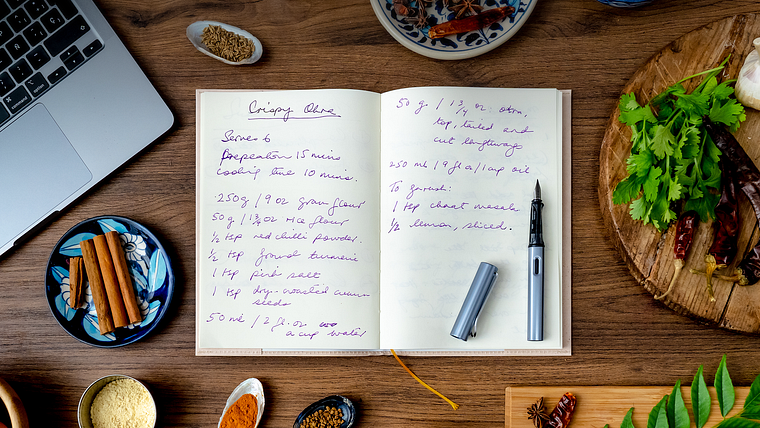 Crispy Okra
Serves 6
Preparation 15 mins
Cooking time 10 mins.
250g / 9 oz gram flour
50g / 1¾ oz rice flour
½ tsp red chilli powder.
½ tsp ground turmeric
1 tsp pink salt
1 tsp dry-roasted cumin
seeds
50 ml / 2 fl. oz
a cup water
50 g / 1¾ oz okra,
top, tailed and
cut lengthways
250 ml / 9 fl oz / 1 cup oil
To garnish:
1 tsp chaat masala
½ lemon, sliced.